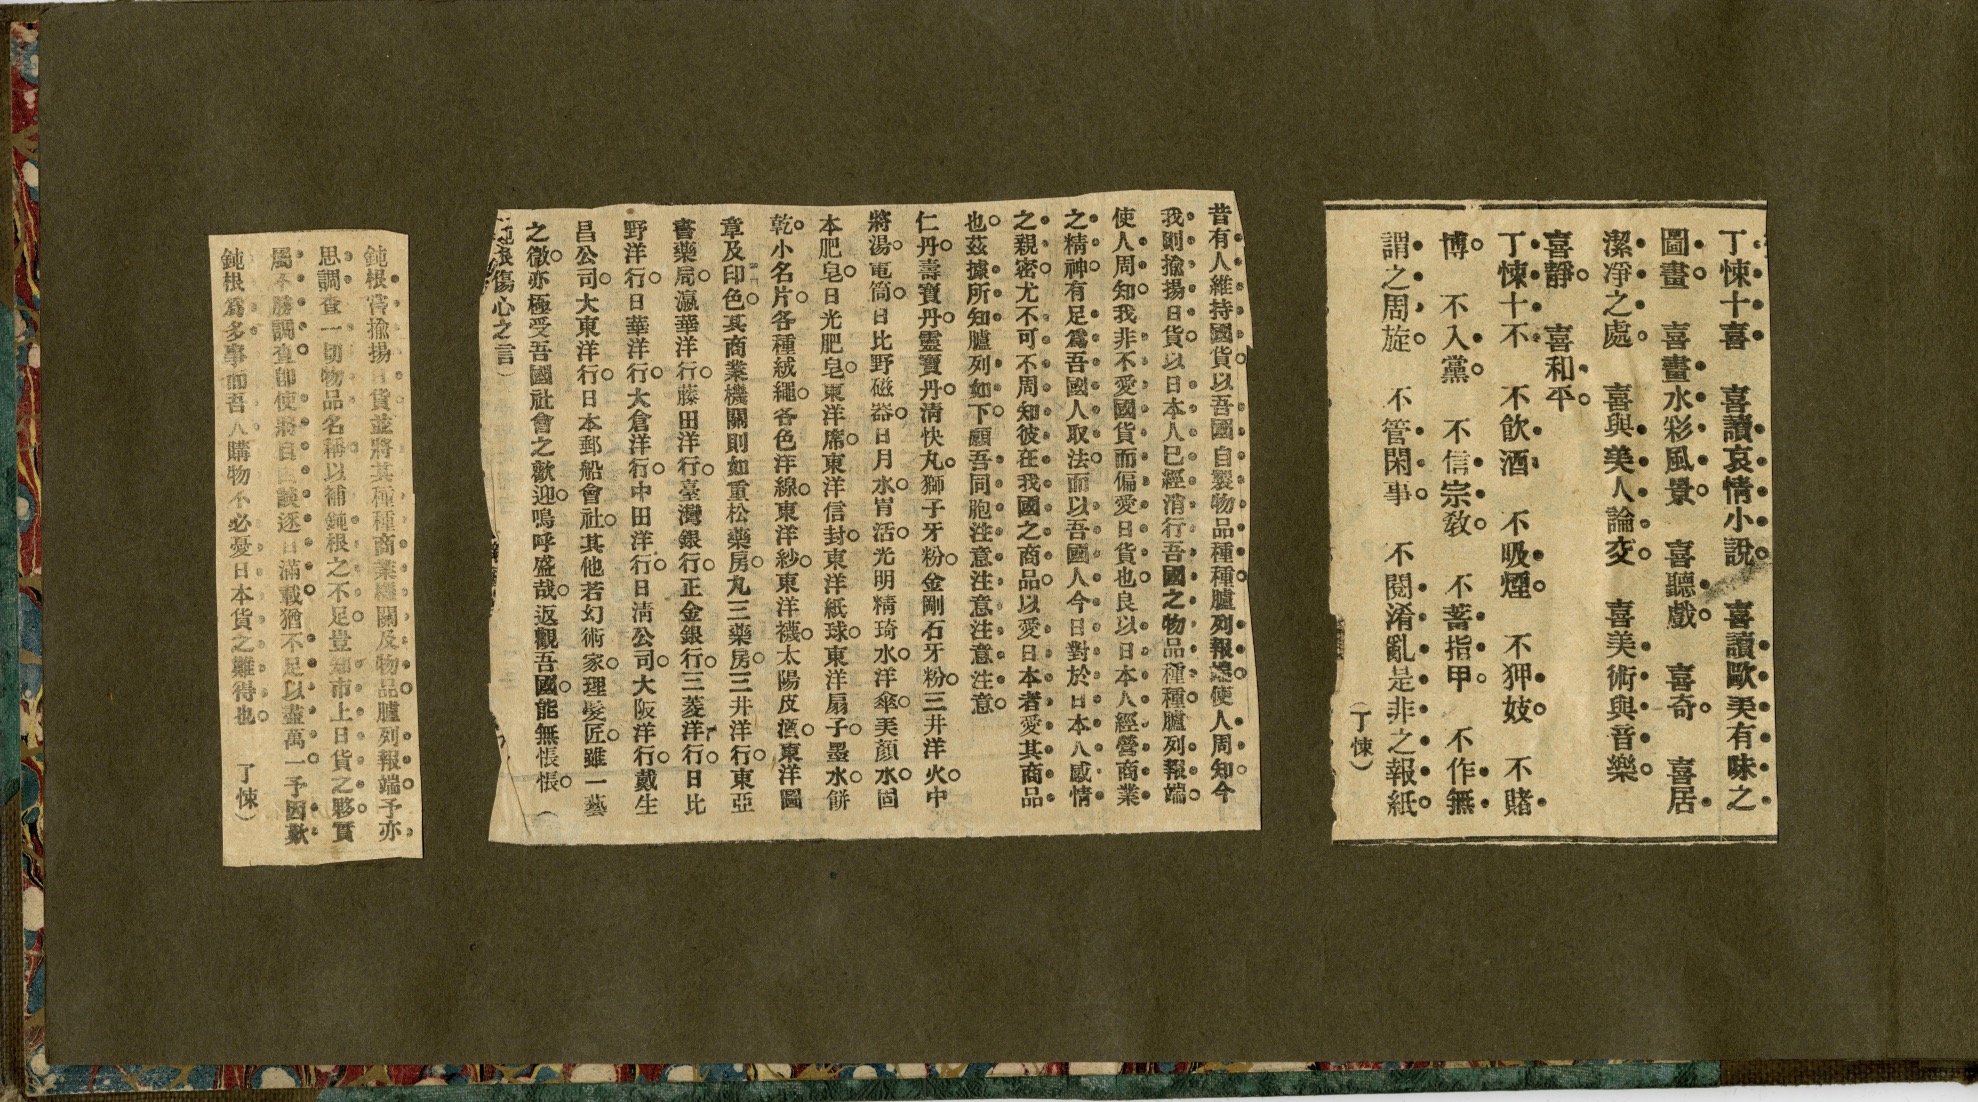 丁悚十喜　喜讀哀情小說。喜讀歐美有味之
圖畫。喜畫水彩風景。喜聽戲。喜奇　喜居
潔凈之處。喜與美人論交。喜美術與音樂。
喜靜。喜和平。
丁悚十不　不飲酒　不吸煙。不狎妓。不賭
博。不入黨。不信宗敎。不蓄指甲。不作無
謂之周旋　不管閑事。不閱淆亂是非之報紙。
（丁悚）
昔有人維持國貨以吾國自製物品種種臚列報端使人周知今
我則揄揚日貨以日本人已經消行吾國之物品種種臚列報端
使人周知我非不愛國貨而偏愛日貨也良以日本人經營商業
之精神有足爲吾國人取法而以吾國人今日對於日本人感情
之親密尤不可不周知彼在我國之商品以愛日本者愛其商品
也茲據所知臚列如下願吾同胞注意注意注意注意
仁丹壽寶丹靈寶丹淸快丸獅子牙粉金剛石牙粉三井洋火中
將湯電筒日比野磁器日月水胃活光明精琦水洋傘美顏水固
本肥皂日光肥皂東洋席東洋信封東洋紙球東洋扇子墨水餅
乾小名片各種絨繩各色洋線東洋紗東洋襪太陽皮酒東洋圖
章及印色其商業機關則如重松藥房丸三藥房三井洋行東亞
書藥局瀛華洋行藤田洋行臺灣銀行正金銀行三菱洋行日比
野洋行日華洋行大倉洋行中田洋行日淸公司大阪洋行戴生
昌公司大東洋行日本郵船會社其他若幻術家理髮匠雖一藝
之微亦極受吾國社會之歡迎嗚呼盛哉返觀吾國能無悵悵（
鈍根傷心之言）
鈍根嘗揄揚日貨並將其種種商業機關及物品臚列報端予亦
思調查一切物品名稱以補鈍根之不足豈知市上日貨之夥實
屬不勝調查卽使將自由談逐日滿載猶不足以盡萬一予因歎
鈍根爲多事而吾人購物不必憂日本貨之難得也　丁悚）